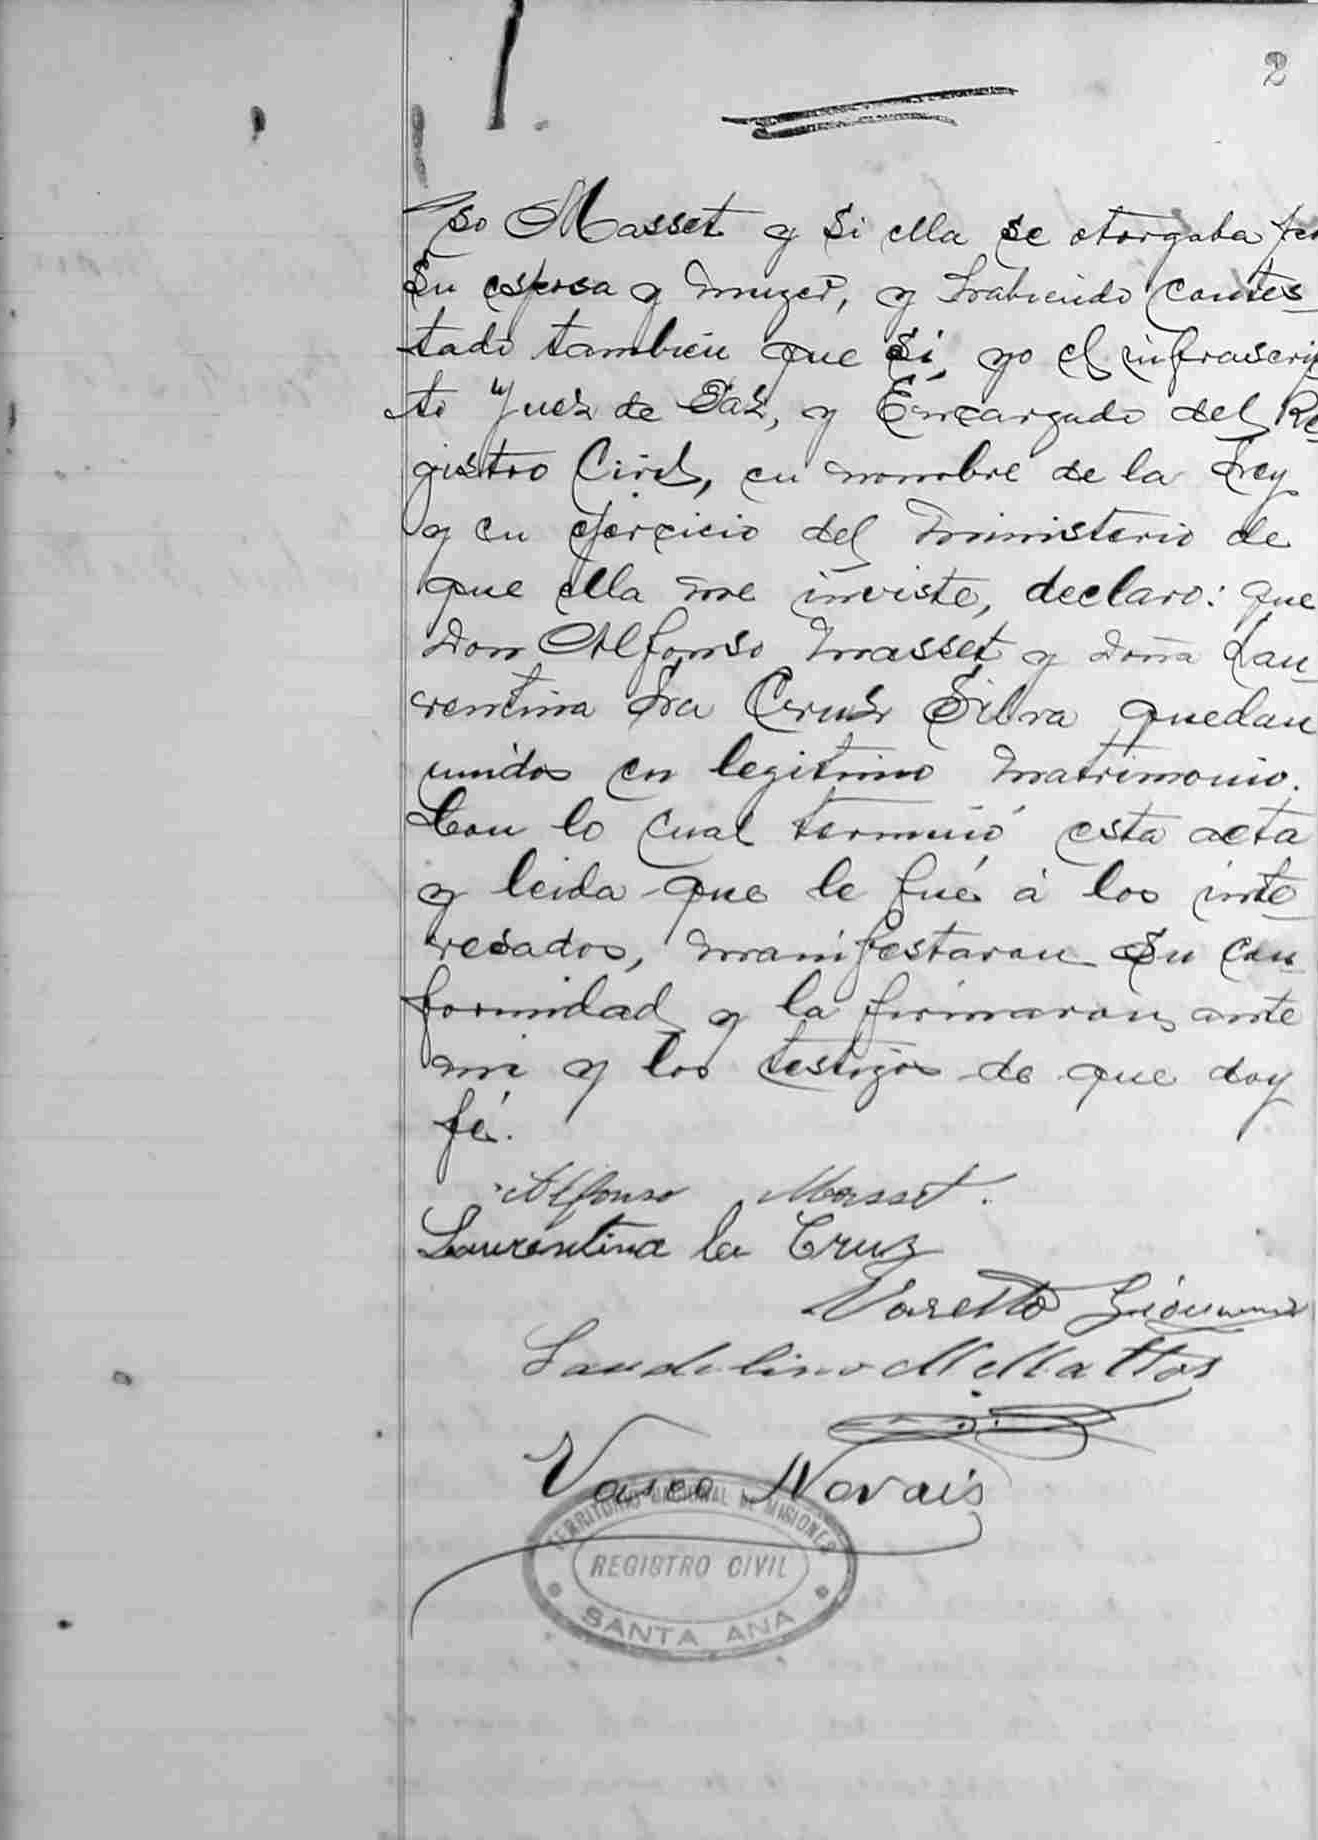 2
so Masset y si ella se otorgaba por
su esposa y muger, y habiendo contes_
tado tambien que si, yo el infrascrip
to Juez de Paz, y Encargado del Re
gistro Civil, en nombre de la Ley
y en ejercicio del ministerio de
que ella me inviste, declaro: que
don Alfonso Masset y doña Lau_
rentina La Cruz Silva quedan
unidos en legitimo matrimonio.
Con lo cual terminó esta acta
y leida que le fué á los inte_
resados, manifestaron su con_
formidad y la firmaron ante
mi y los testigos de que doy
fé.
Alfonso Masset.
Laurentina la Cruz
Varetto
Laudelino M Mattos
Vasco Novais
TERRITORIO NACIONAL DE MISIONES
REGISTRO CIVIL
SANTA ANA